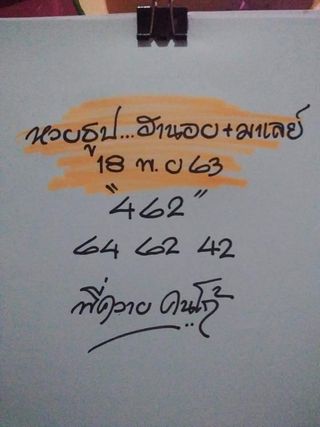 หวยธูป...ฮานอย+มาเลย์
18 พ.ย 63
"462"
64 62 42
พี่ควาย คนโก้